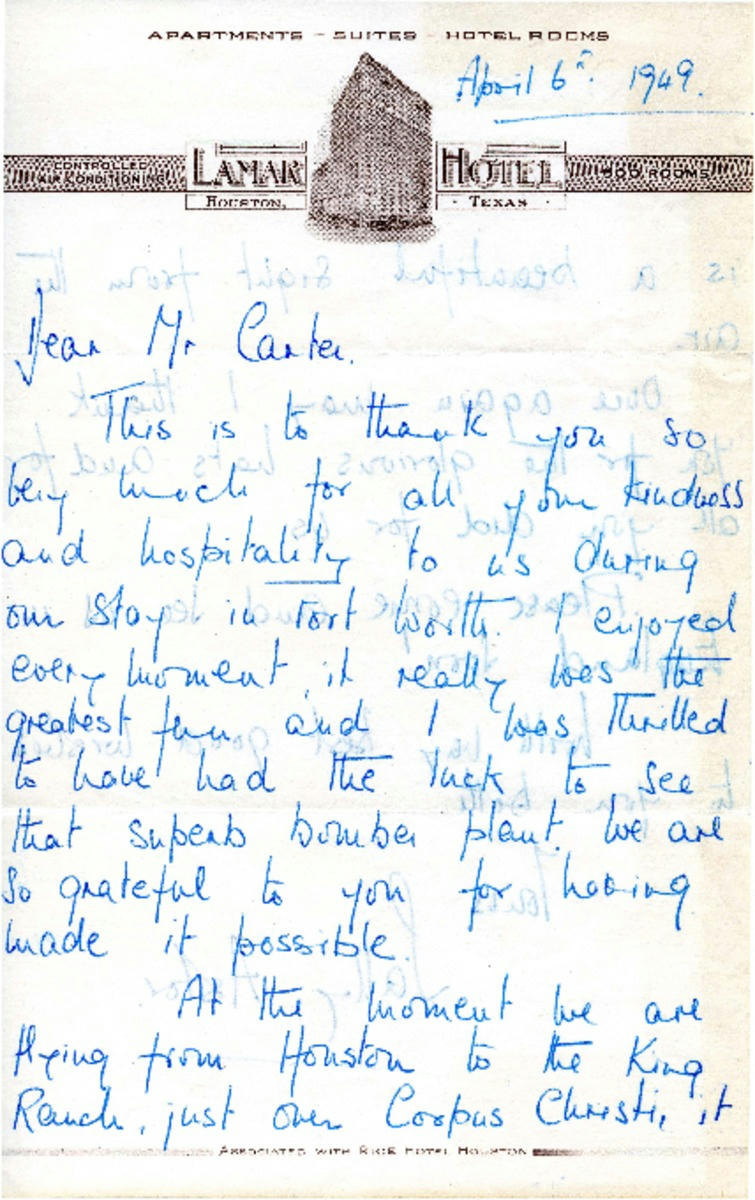 APARTMENTS - SUITES - HOTEL ROOMS
April 6th. 1949.
CONTROLLED AIR KONDITIONING LAMAR HOTEL 500 ROOMS
HOUSTON, TEXAS
Dear Mr Carter.
This is to thank you so
very much for all your kindness
and hospitality to us during
our stay in Fort Worth. I enjoyed
every moment, it really was the
greatest fun and I was thrilled
to have had the luck to see
that superb bomber plant. We are
so grateful to you for having
made it possible.
At the moment we are
flying from Houston to the King
Ranch, just over Corpus Christi, it
ASSOCIATED WITH RICE HOTEL HOUSTON